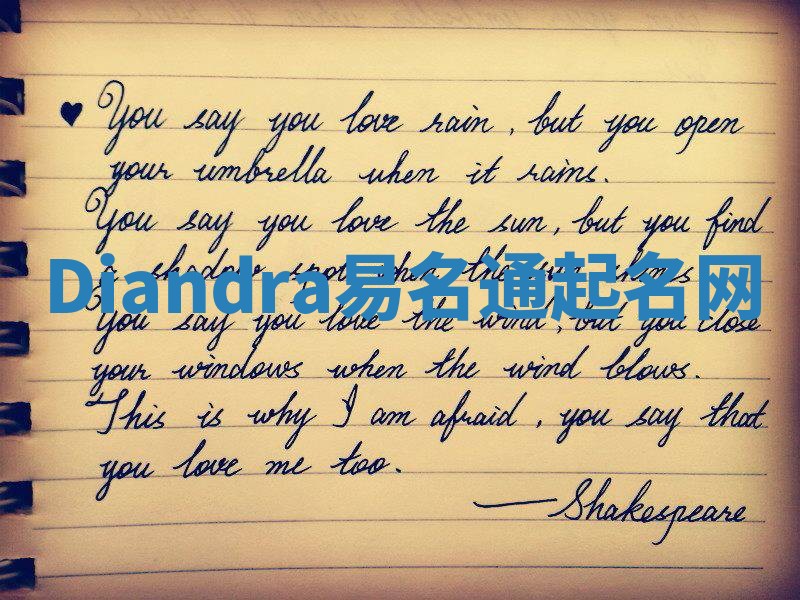 ♥ You say you love rain, but you open
your umbrella when it rains.
You say you love the sun, but you find
a shadow spot when the sun shines
Diandra易名通起名网
You say you love the wind, but you close
your windows when the wind blows.
This is why I am afraid, you say that
you love me too.
— Shakespeare